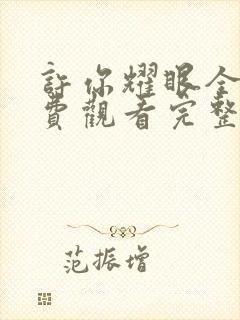 許你耀眼全
費觀看完整
范振增